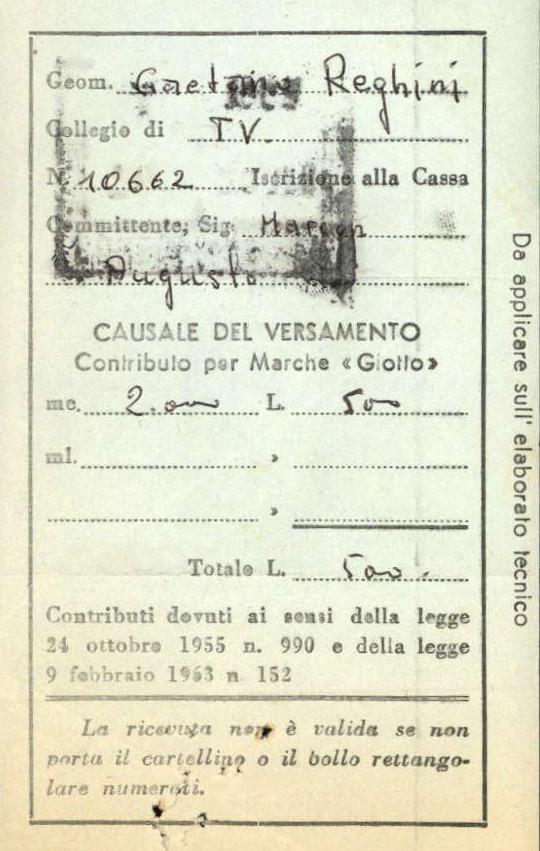 Geom. Gaetano Reghini
Collegio di TV.
N. 10662 Iscrizione alla Cassa
Committente, Sig.
Augusto
CAUSALE DEL VERSAMENTO
Contributo per Marche «Giotto»
mc. 2.000 L. 500
ml. »
»
Totale L. 500.
Contributi dovuti ai sensi della legge
24 ottobre 1955 n. 990 e della legge
9 febbraio 1963 n 152
La ricevuta non è valida se non
porta il cartellino o il bollo rettango-
lare numerati.
Da applicare sull' elaborato tecnico